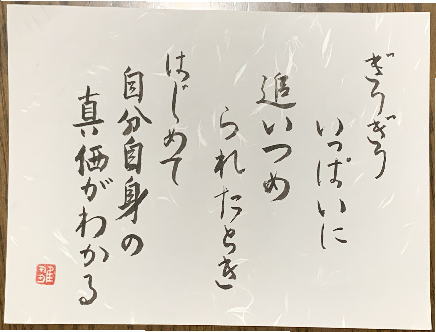 ぎりぎり
いっぱいに
追いつめ
られたとき
はじめて
自分自身の
真価がわかる